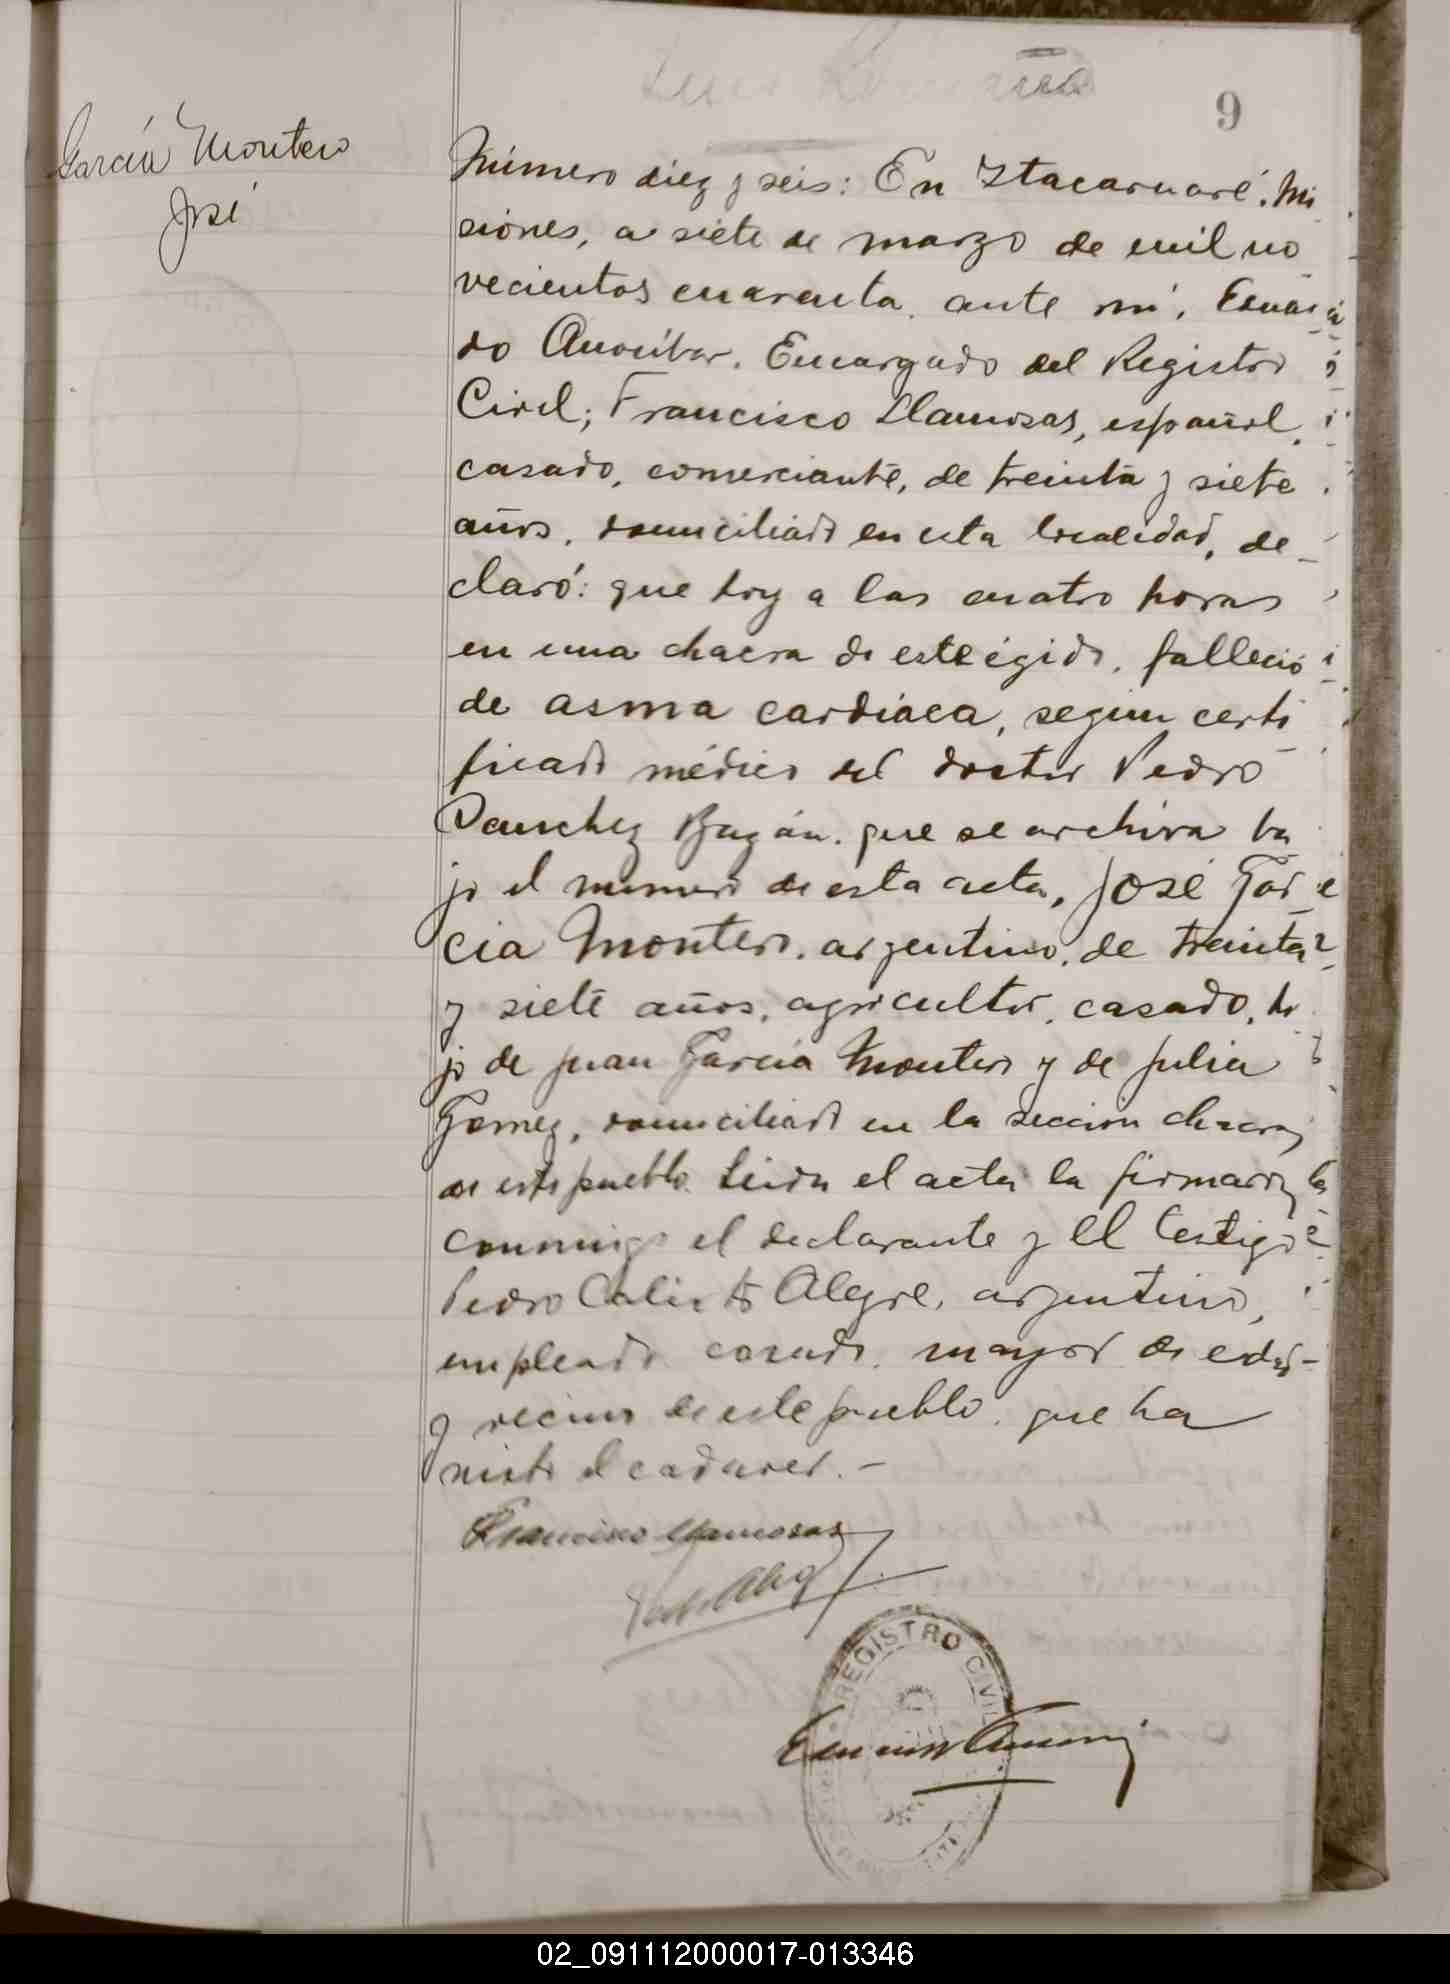 9
García Montero
José
Número diez y seis: En Itacaruaré. Mi
siones, a siete de marzo de mil no
vecientos cuarenta, ante mí, Eduar
do Encargado del Registro
Civil; Francisco Llamosas, español,
casado, comerciante, de treinta y siete
años, domiciliado en esta localidad, de-
claró: que hoy a las cuatro horas
en una chacra de este égido, falleció
de asma cardíaca, según certi
ficado médico del doctor Pedro
Sanchez Bazán. que se archiva ba
jo el numero de esta acta, José Gar
cia Montero, argentino, de treinta
y siete años, agricultor, casado, hi
jo de Juan García Montero y de Julia
Gomez, domiciliado en la seccion chacras
de este pueblo. Leida el acta la firmaron
conmigo el declarante y el testigo
Pedro Calixto Alegre, argentino,
empleado casado, mayor de edad-
y vecino de este pueblo, que ha
visto el cadaver. -
Francisco Llamosas
REGISTRO CIVIL
02_091112000017-013346